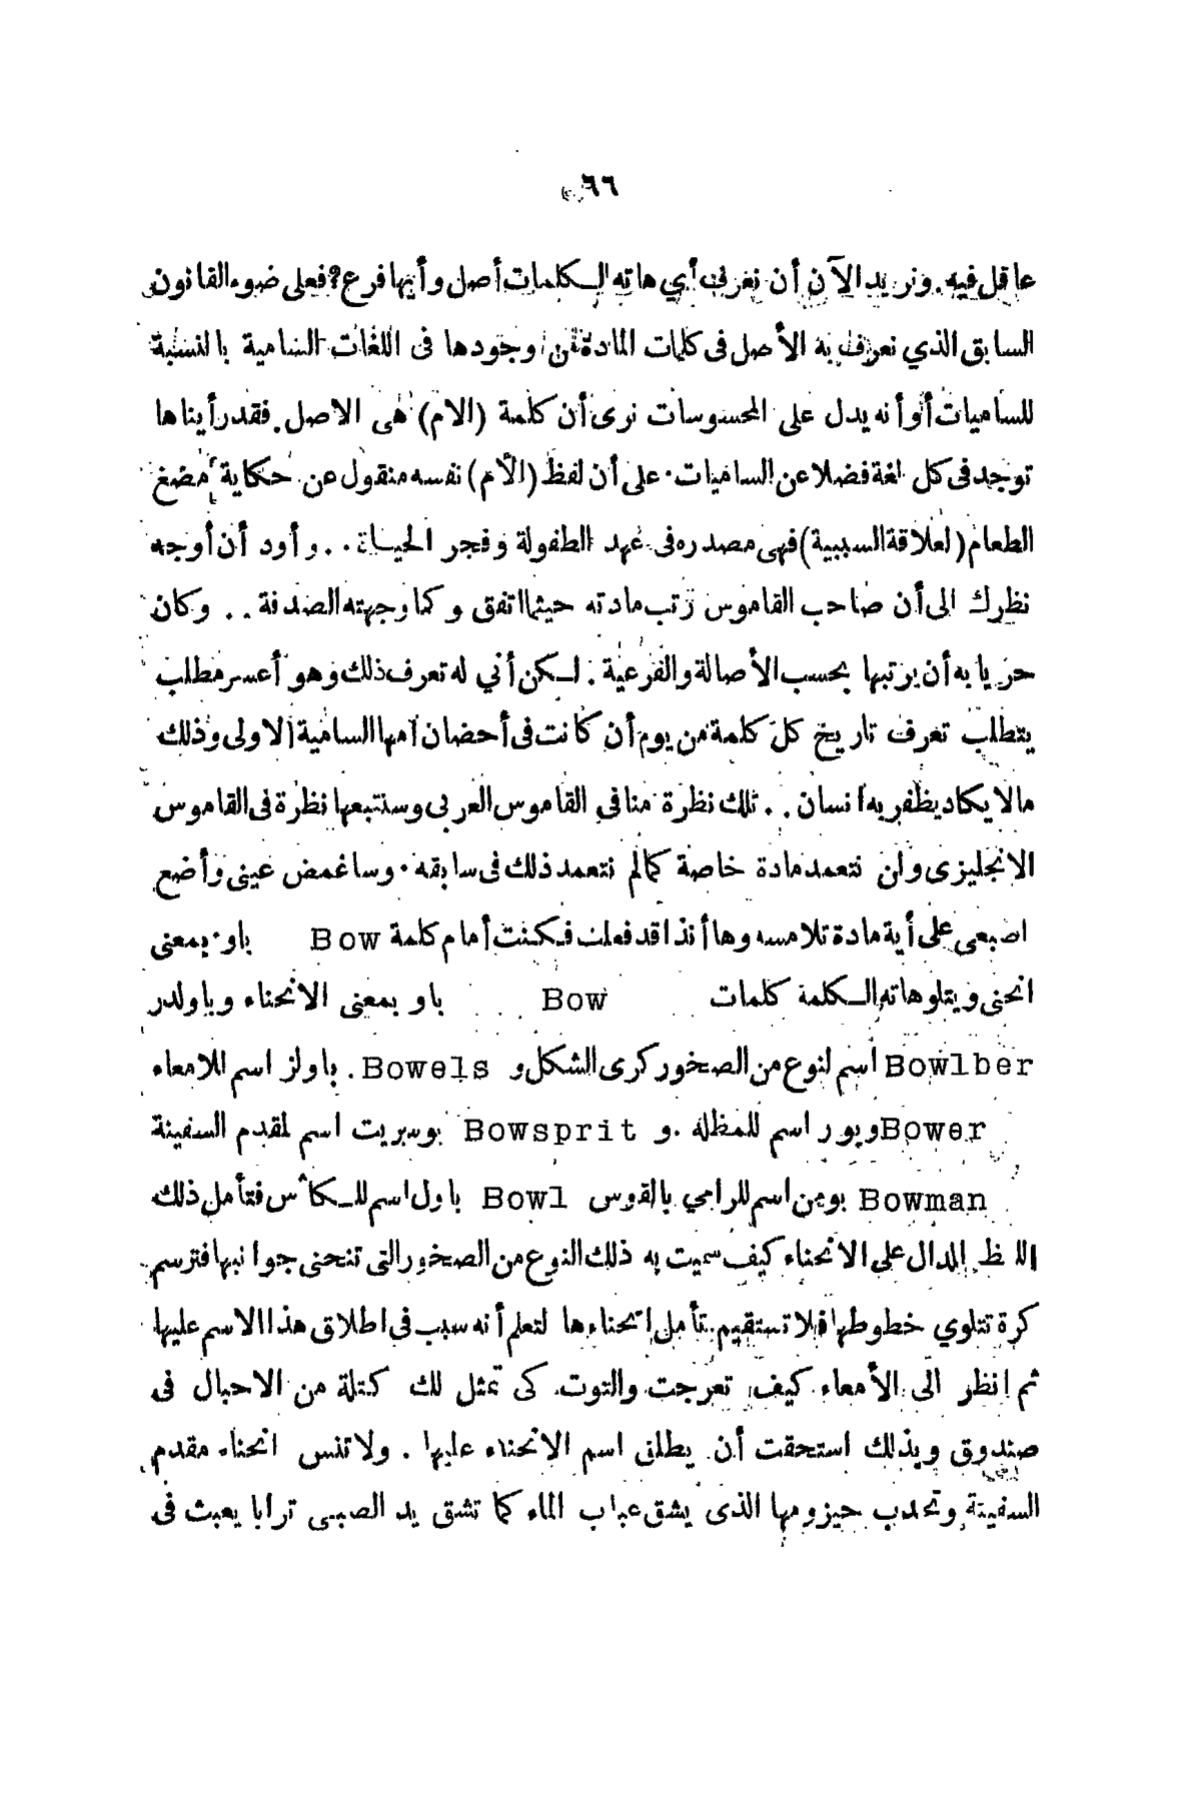 ٦٦
عاقل فيه. ونريد الآن أن نعرف أي هاته الكلمات أصل وأيها فرع؟ فعلى ضوء القانون
السابق الذي نعرف به الأصل فى كلمات المادة من وجودها فى اللغات السامية بالنسبة
للساميات أو أنه يدل على المحسوسات نرى أن كلمة (الام) هى الاصل. فقد رأيناها
توجد فى كل لغة فضلا عن الساميات. على أن لفظ (الأم) نفسه منقول عن حكاية مضغ
الطعام (لعلاقة السببية) فهى مصدره فى عهد الطفولة وفجر الحياة.. وأود أن أوجه
نظرك الى أن صاحب القاموس رتب مادته حيثما اتفق وكما وجهته الصدفة.. وكان
حريا به أن يرتبها بحسب الأصالة والفرعية. لكن أنى له تعرف ذلك وهو أعسر مطلب
يتطلب تعرف تاريخ كل كلمة من يوم أن كانت فى أحضان أمها السامية الاولى وذلك
مالا يكاد يظفر به انسان.. تلك نظرة منا في القاموس العربى وسنتبعها نظرة فى القاموس
الانجليزى ولن نتعمد مادة خاصة كما لم نتعمد ذلك فى سابقه. وسأغمض عينى وأضع
اصبعى على أية مادة تلامسه وهاأنذا قد فعلت فكنت أمام كلمة Bow باو بمعنى
انحنى ويتلو هاته الكلمة كلمات Bow باو بمعنى الانحناء وباولدر
Bowlber اسم لنوع من الصخور كرى الشكل و Bowels. باولز اسم للامعاء
Bower وبور اسم للمظلة. و Bowsprit بوسبريت اسم لمقدم السفينة
Bowman بومن اسم للرامي بالقوس Bowl باول اسم للكأس فتأمل ذلك
اللظ الدال على الانحناء كيف سميت به ذلك النوع من الصخور التى تنحنى جوانبها فترسم
كرة تتلوي خطوطها فلا تستقيم. تأمل انحناءها لتعلم أنه سبب فى اطلاق هذا الاسم عليها
ثم انظر الى الأمعاء كيف تعرجت والتوت كى تمثل لك كتلة من الاحبال فى
صندوق وبذلك استحقت أن يطلق اسم الانحناء عليها. ولا تنس انحناء مقدم
السفينة وتحدب حيزومها الذى يشق عباب الماء كما تشق يد الصبى ترابا يعبث فى